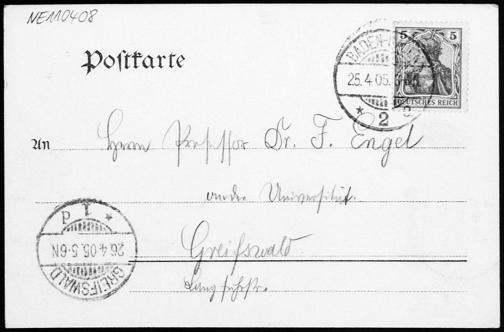 NE110408
Postkarte
5 5
DEUTSCHES REICH
BADEN-
25.4.05.
* 2 c
An Herrn Professor Dr. F. Engel
an der Universität.
Greifswald
Langfuhrstr.
* 1 d
26.4.05.5-6N
GREIFSWALD